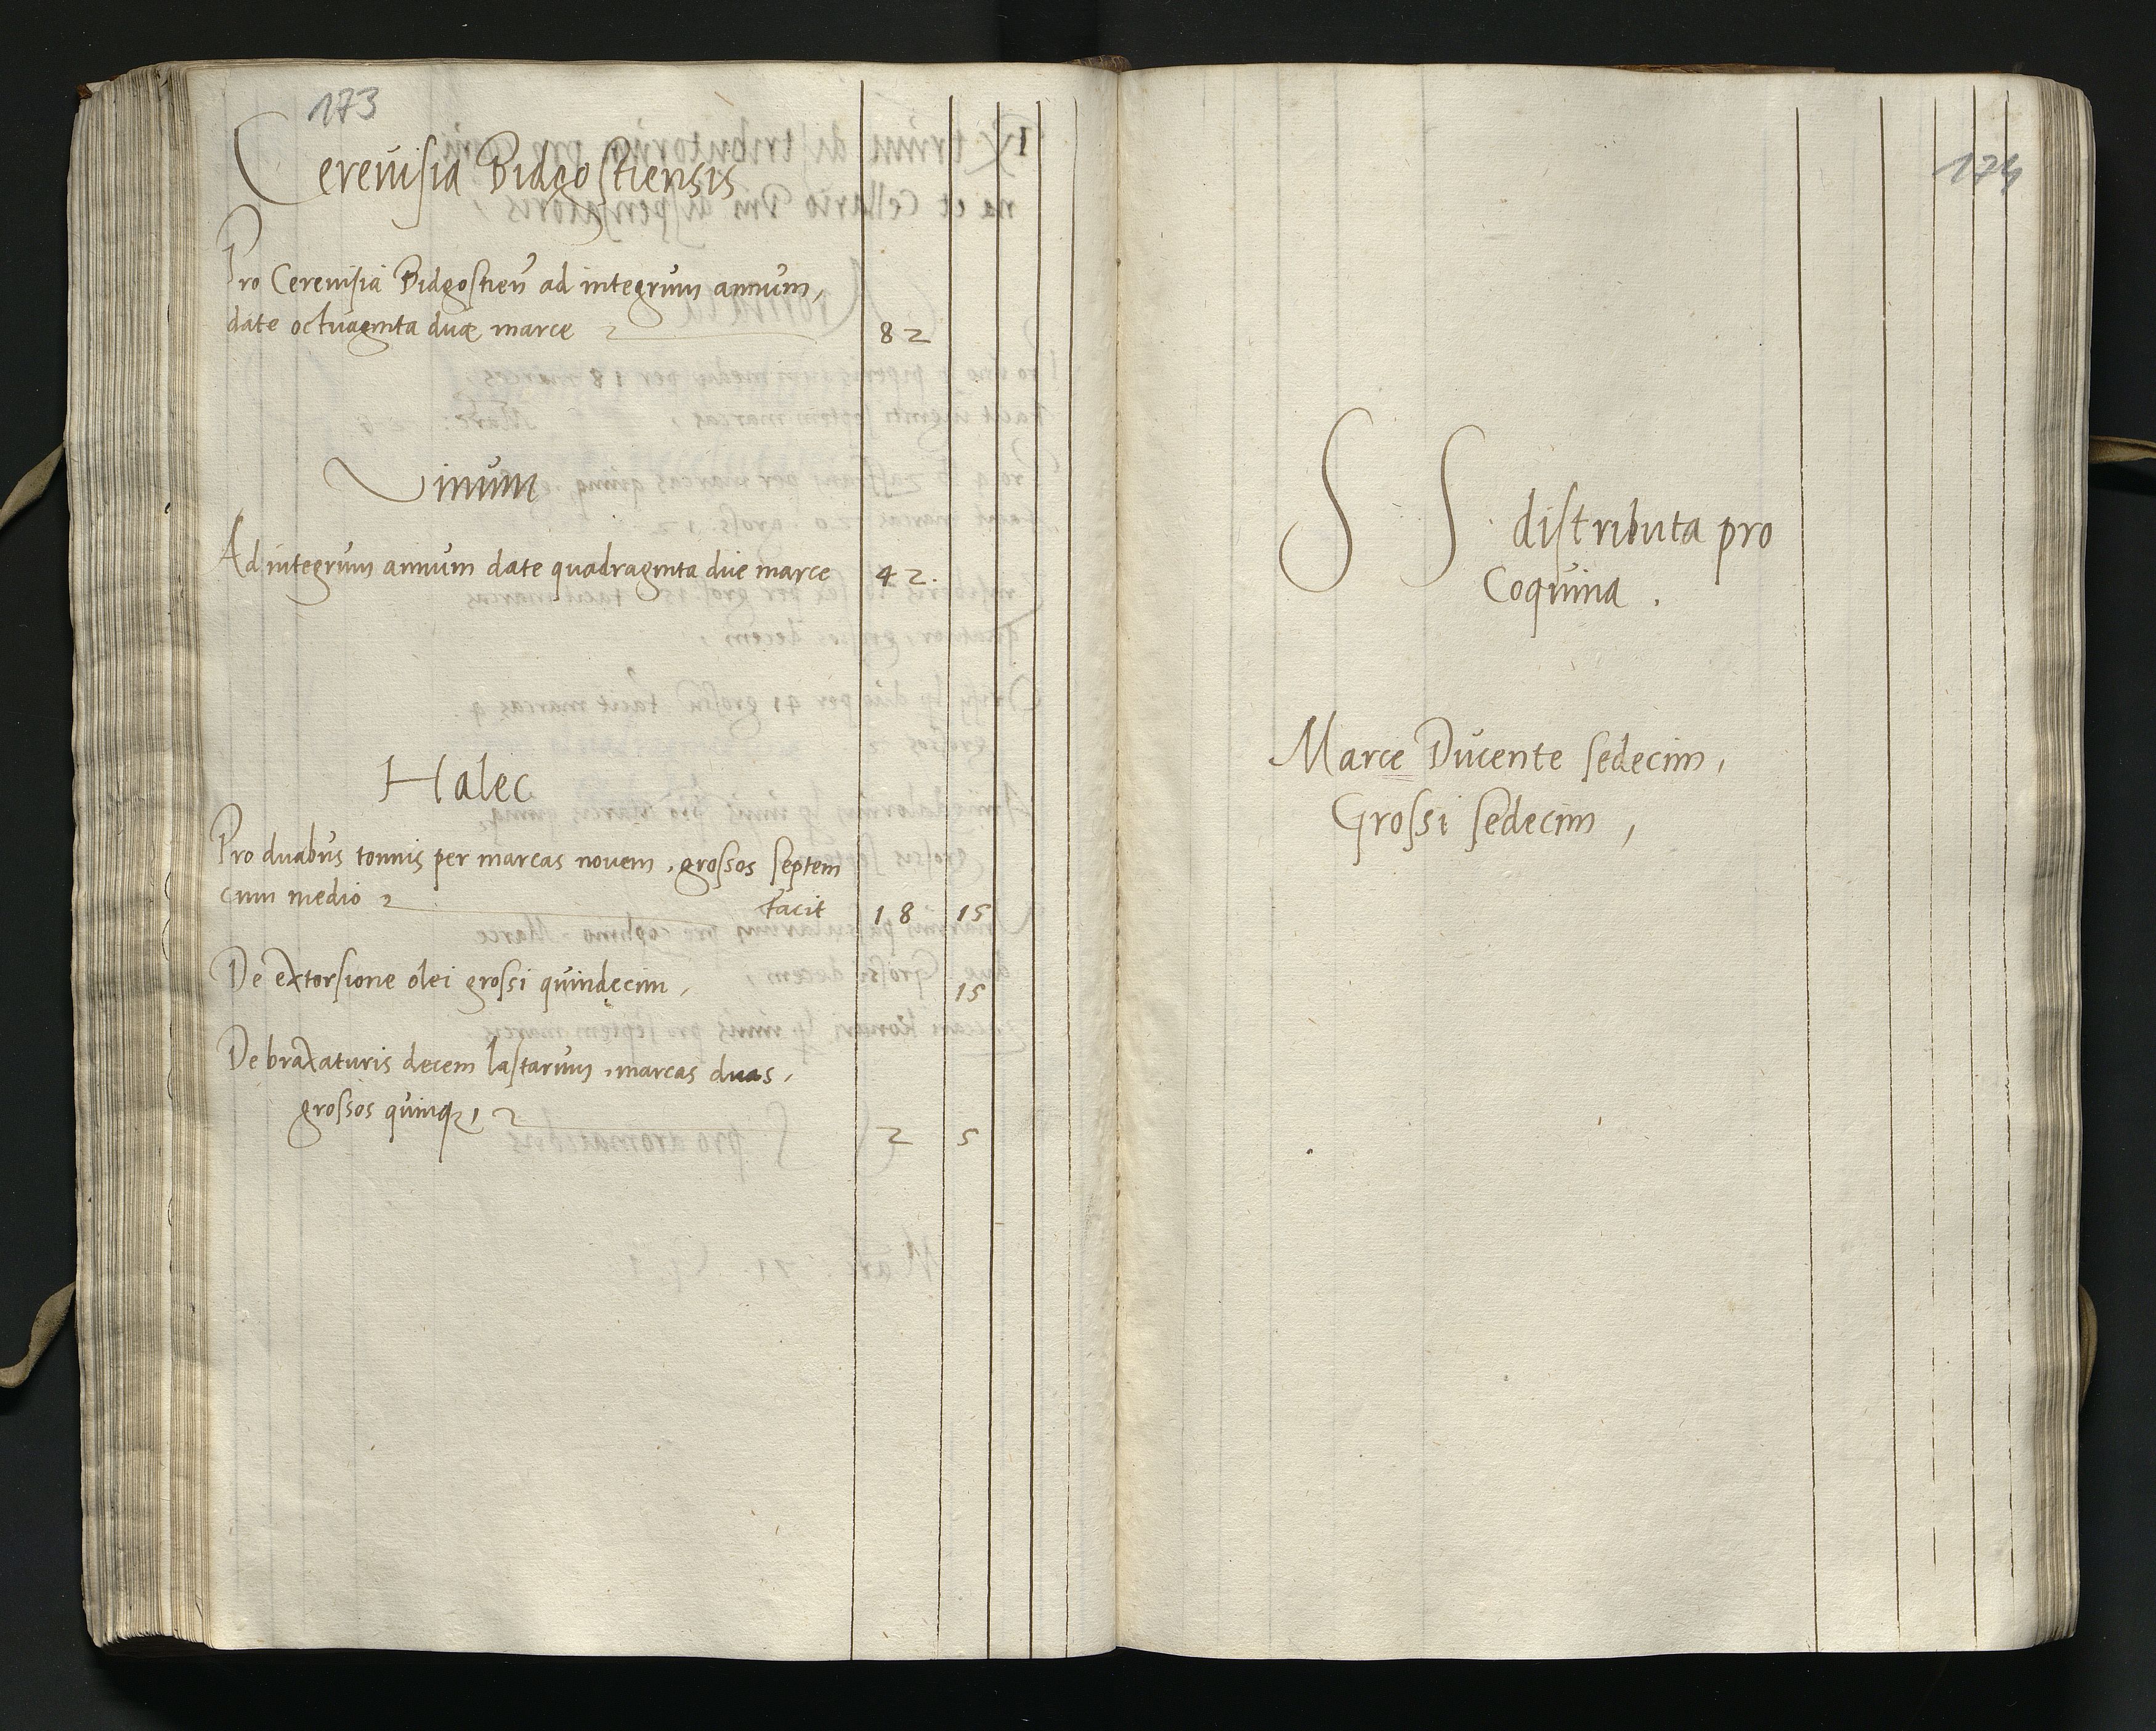 173
Cerevisia Bidgostiensis
Pro Cerevisia Bidgostien̄ ad integrum annum,
date octuaginta duæ marce 82
Vinum
Ad integrum annum date quadraginta due marce 42.
Halec
Pro duabus tonnis per marcas novem, grossos septem
cum medio facit 18 15
De extorsione olei grossi quindecim, 15
De braxaturis decem lastarum, marcas duas,
grossos quinqꝫ, 2 5
174
S S distributa pro
Coquina.
Marce Ducente sedecim,
Grossi sedecim,